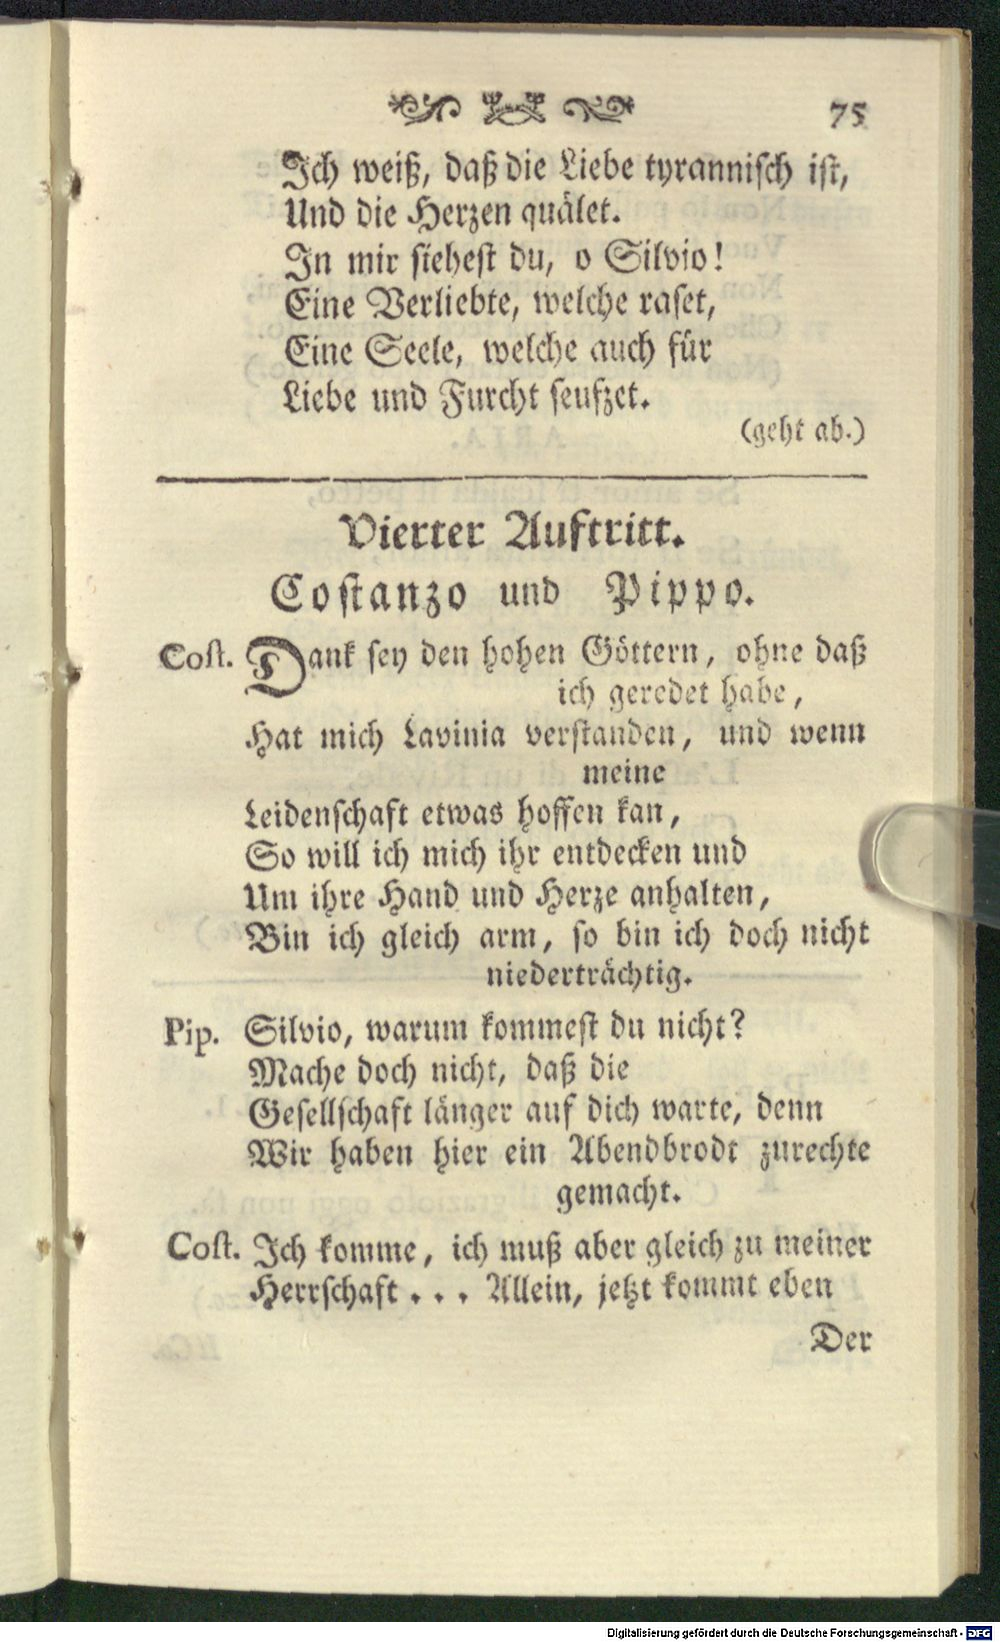 75
Ich weiß, daß die Liebe tyrannisch ist,
Und die Herzen quälet.
In mir siehest du, o Silvio!
Eine Verliebte, welche raset,
Eine Seele, welche auch für
Liebe und Furcht seufzet.
(geht ab.)
Vierter Auftritt.
Costanzo und Pippo.
Cost. Dank sey den hohen Göttern, ohne daß
ich geredet habe,
Hat mich Lavinia verstanden, und wenn
meine
Leidenschaft etwas hoffen kan,
So will ich mich ihr entdecken und
Um ihre Hand und Herze anhalten,
Bin ich gleich arm, so bin ich doch nicht
niederträchtig.
Pip. Silvio, warum kommest du nicht?
Mache doch nicht, daß die
Gesellschaft länger auf dich warte, denn
Wir haben hier ein Abendbrodt zurechte
gemacht.
Cost. Ich komme, ich muß aber gleich zu meiner
Herrschaft . . . Allein, jetzt kommt eben
Der
Digitalisierung gefördert durch die Deutsche Forschungsgemeinschaft - DFG